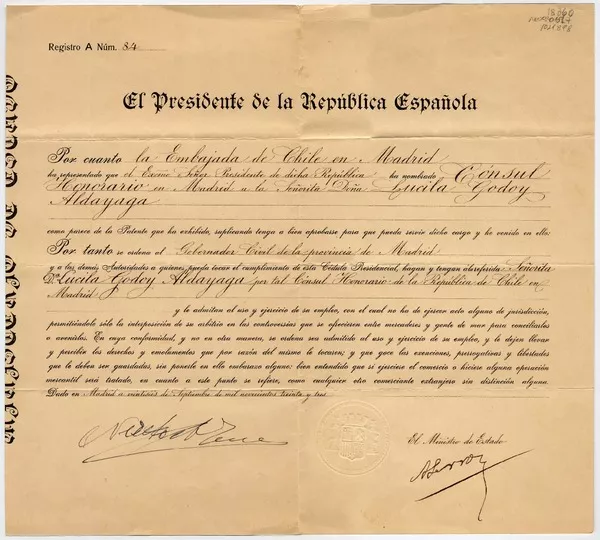 Registro A Núm. 84
El Presidente de la República Española
Por cuanto la Embajada de Chile en Madrid
ha representado que el Excmo Señor Presidente de dicha República ha nombrado Cónsul
Honorario en Madrid a la Señorita Doña Lucila Godoy
Aldayaga
como parece de la Patente que ha exhibido, suplicando tenga a bien aprobarse para que pueda servir dicho cargo y he venido en ello:
Por tanto se ordena al Gobernador Civil de la provincia de Madrid
y a las demás Autoridades a quienes pueda tocar el cumplimiento de esta Cédula Presidencial, hagan y tengan a la referida Señorita
Dª Lucila Godoy Aldayaga por tal Cónsul Honorario de la República de Chile en
Madrid
y la admitan al uso y ejercicio de su empleo, con el cual no ha de ejercer acto alguno de jurisdicción,
permitiéndole sólo la interposición de su arbitrio en las controversias que se ofrecieren entre mercaderes y gente de mar para conciliarlos
o avenirlos. En cuya conformidad, y no en otra manera, se ordena sea admitido al uso y ejercicio de su empleo, y le dejen llevar
y percibir los derechos y emolumentos que por razón del mismo le tocaren; y que goce las exenciones, prerrogativas y libertades
que le deben ser guardadas, sin ponerle en ello embarazo alguno; bien entendido que si ejerciese el comercio o hiciere alguna operación
mercantil será tratado, en cuanto a este punto se refiere, como cualquier otro comerciante extranjero sin distinción alguna.
Dado en Madrid a veintiseis de Septiembre de mil novecientos treinta y tres
El Ministro de Estado